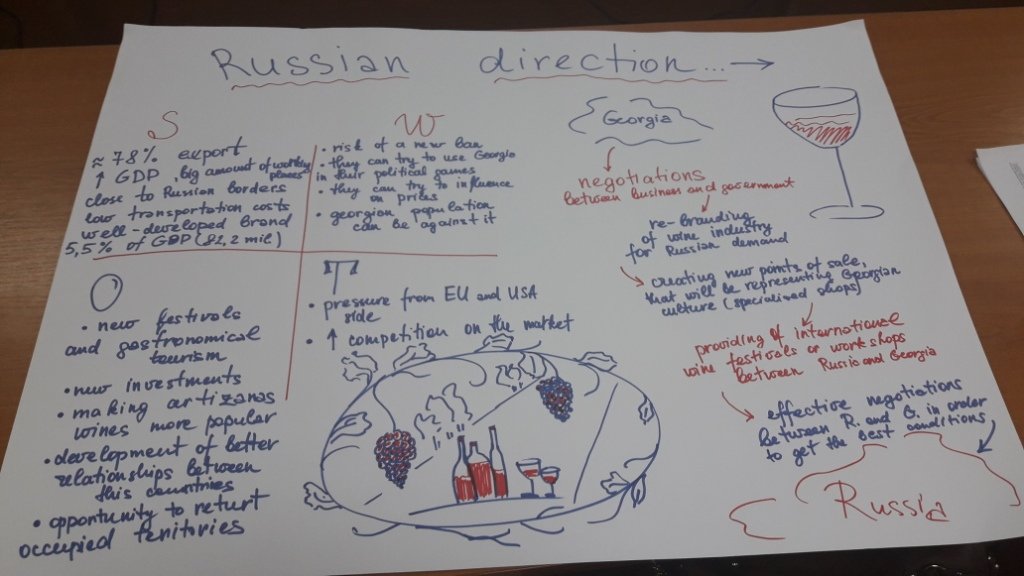 Russian direction... →
S
≈ 78% export
↑ GDP, big amount of working places
close to Russian borders
low transportation costs
well-developed brand
5,5% of GDP (82,2 mil)
W
• risk of a new ban
• they can try to use Georgia
in their political games
• they can try to influence
on prices
• georgian population
can be against it
O
• new festivals
and gastronomical
tourism
• new investments
• making artizanas
wines more popular
• development of better
relationships between
this countries
• opportunity to return
occupied territories
T
• pressure from EU and USA
side
• ↑ competition on the market
Georgia
negotiations
between business and government
re-branding
of wine industry
for Russian demand
creating new points of sale,
that will be representing Georgian
culture (specialised shops)
providing of international
wine festivals or workshops
between Russia and Georgia
effective negotiations
between R. and G. in order
to get the best conditions
Russia